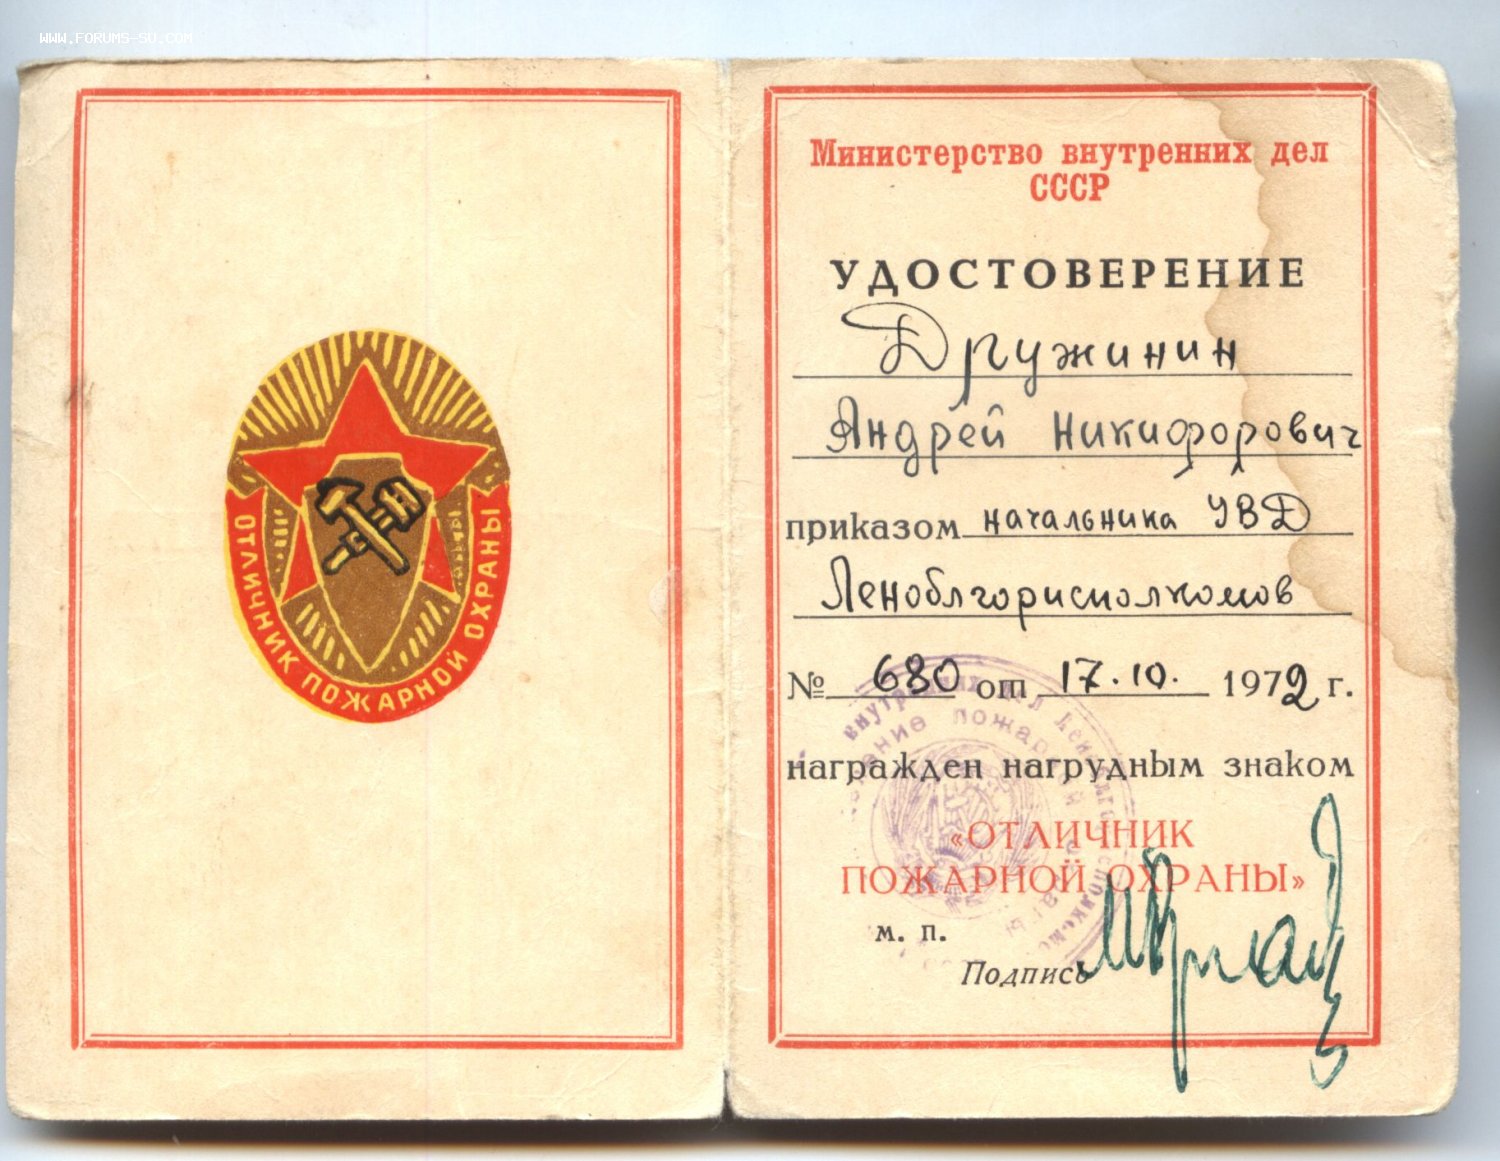 WWW.FORUMS-SU.COM
ОТЛИЧНИК ПОЖАРНОЙ ОХРАНЫ
Министерство внутренних дел
СССР
УДОСТОВЕРЕНИЕ
Дружинин
Андрей Никифорович
приказом начальника УВД
Леноблгорисполкомов
№ 680 от 17.10. 1972 г.
награжден нагрудным знаком
«ОТЛИЧНИК
ПОЖАРНОЙ ОХРАНЫ»
м. п.
Подпись
внутренних дел